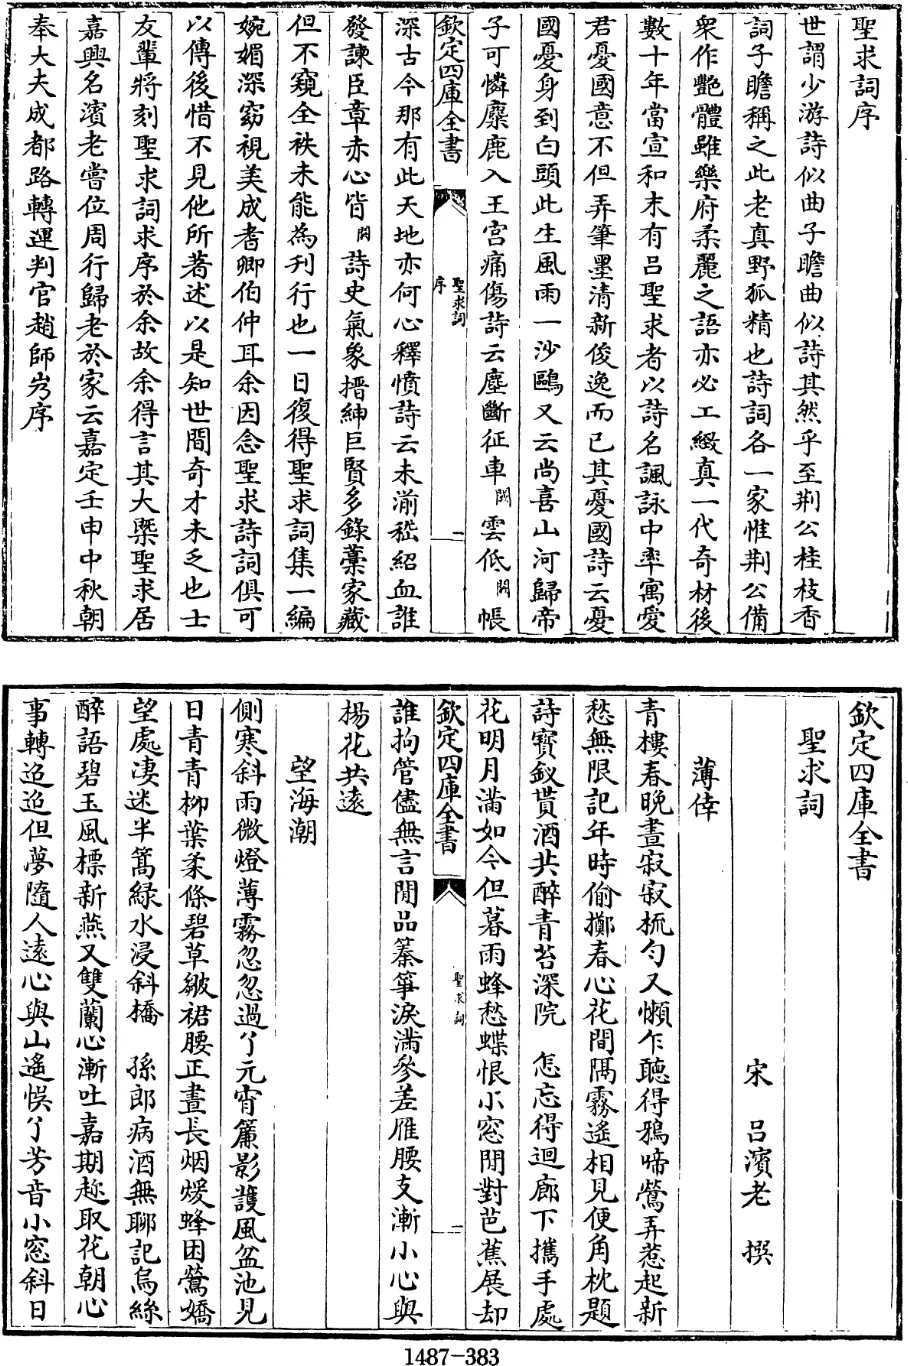 聖求詞序
世謂少游詩似曲子瞻曲似詩其然乎至荆公桂枝香
詞子瞻稱之此老真野狐精也詩詞各一家惟荆公備
衆作艷體雖樂府柔麗之語亦必工緻真一代奇材後
數十年當宣和末有吕聖求者以詩名諷詠中率寓愛
君憂國意不但弄筆墨清新俊逸而已其憂國詩云憂
國憂身到白頭此生風雨一沙鷗又云尚喜山河歸帝
子可憐麋鹿入王宫痛傷詩云塵斷征車闕雲低闕帳
欽定四庫全書
聖求詞
序
一
深古今那有此天地亦何心釋憤詩云未湔嵇紹血誰
發諫臣章赤心皆闕詩史氣象搢紳巨賢多錄藁家藏
但不窺全袟未能為刋行也一日復得聖求詞集一編
婉媚深窈視美成耆卿伯仲耳余因念聖求詩詞俱可
以傳後惜不見他所著述以是知世間奇才未乏也士
友輩將刻聖求詞求序於余故余得言其大槩聖求居
嘉興名濱老嘗位周行歸老於家云嘉定壬申中秋朝
奉大夫成都路轉運判官趙師岁序
欽定四庫全書
聖求詞
宋　吕濱老　撰
薄倖
青樓春晚晝寂寂梳勻又懶乍聴得鵶啼鶯弄惹起新
愁無限記年時偷擲春心花間隔霧遙相見便角枕題
詩寳釵貰酒共醉青苔深院　怎忘得迴廊下攜手處
花明月滿如今但暮雨蜂愁蝶恨小窓閒對芭蕉展却
欽定四庫全書
聖求詞
一
誰拘管儘無言閒品秦箏淚滿參差雁腰支漸小心與
楊花共遠
望海潮
側寒斜雨微燈薄霧怱怱過了元宵簾影護風盆池見
日青青柳葉柔條碧草皺裙腰正晝長烟煖蜂困鶯嬌
望處凄迷半篙綠水浸斜橋　孫郎病酒無聊記烏絲
醉語碧玉風標新燕又雙蘭心漸吐嘉期趂取花朝心
事轉迢迢但夢隨人遠心與山遙悞了芳音小窓斜日
1487-383